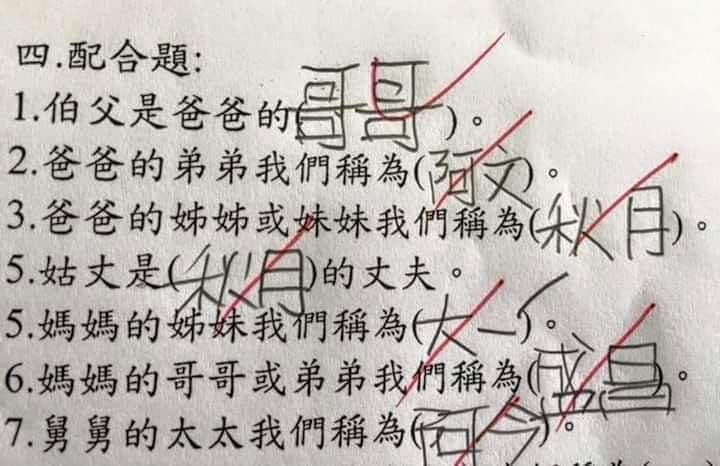 四.配合題:
1.伯父是爸爸的(哥哥)。
2.爸爸的弟弟我們稱為(阿文)。
3.爸爸的姊姊或妹妹我們稱為(秋月)。
5.姑丈是(秋月)的丈夫。
5.媽媽的姊妹我們稱為(大一)。
6.媽媽的哥哥或弟弟我們稱為(盛昌)。
7.舅舅的太太我們稱為(阿今)。